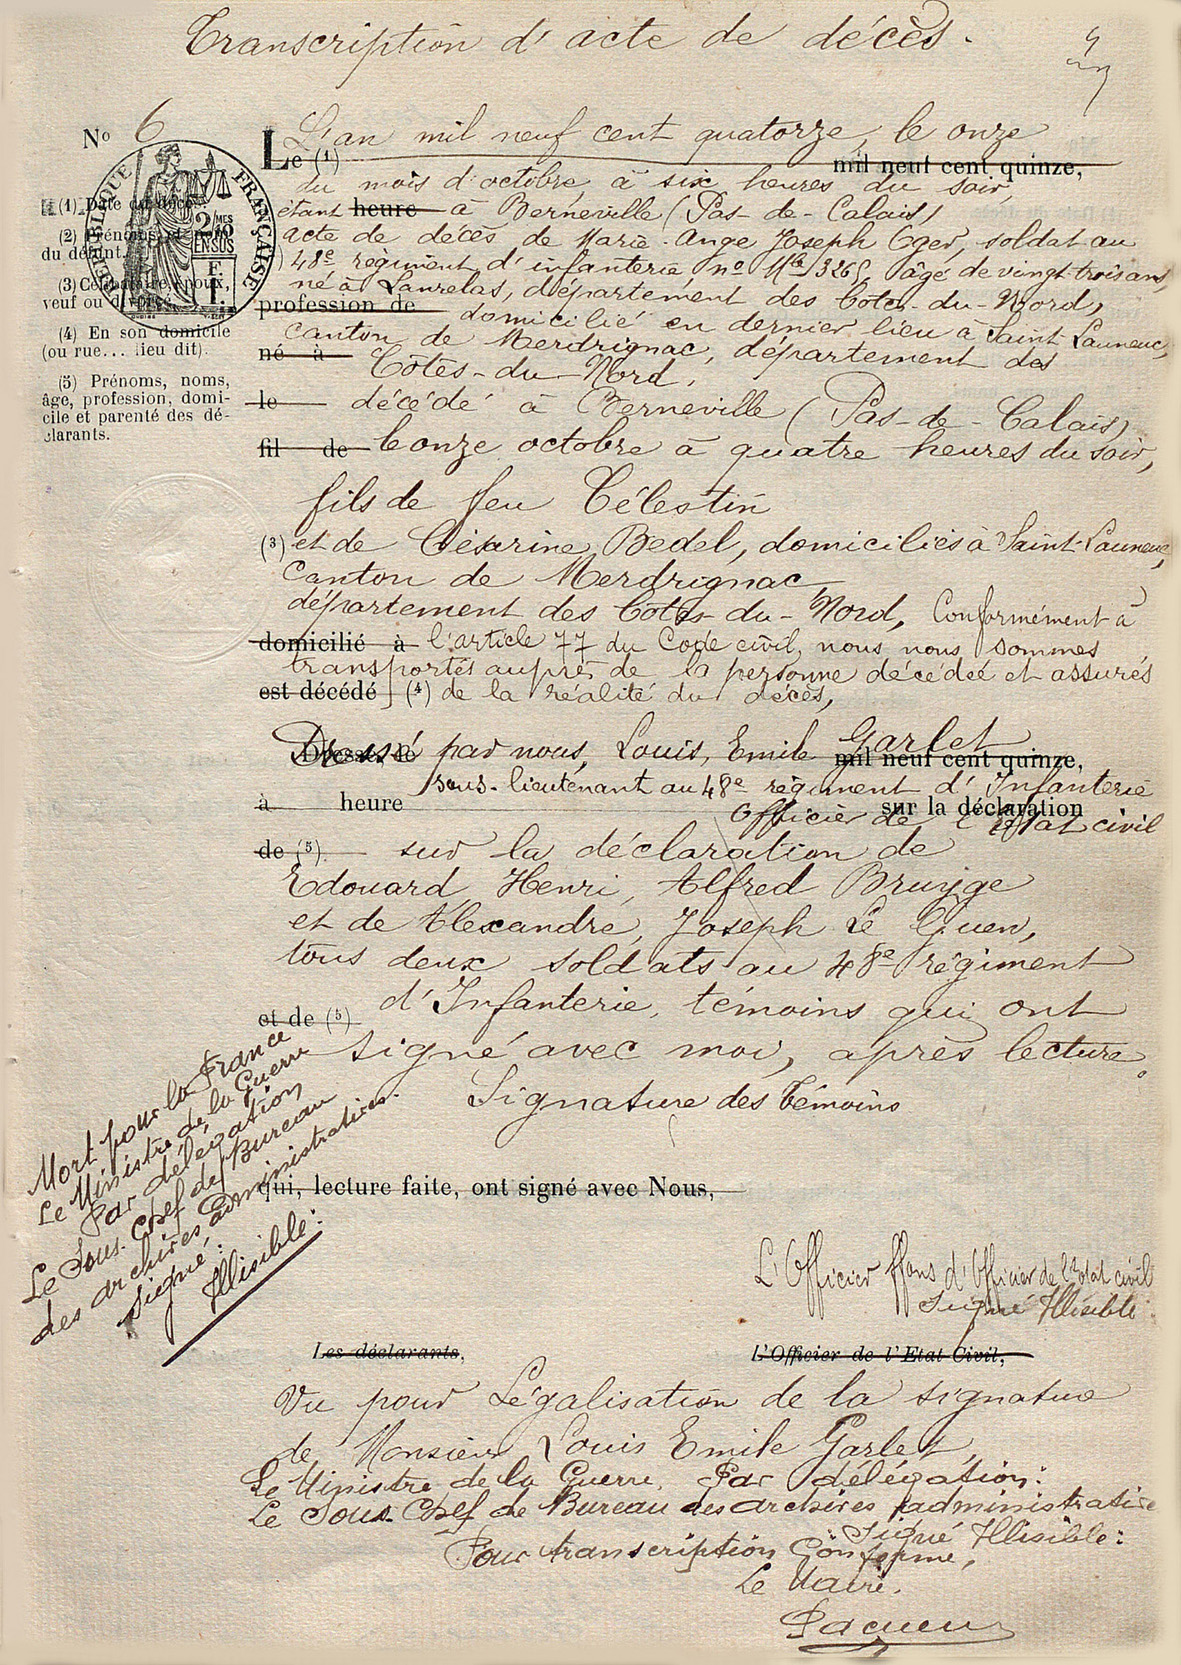 Transcription d'acte de décès.
N° 6
L'an mil neuf cent quatorze, le onze
Le (1) mil neuf cent quinze,
du mois d'octobre à six heures du soir,
étant heure à Berneville (Pas-de-Calais)
acte de décès de Marie-Ange Joseph Oger, soldat au
48e régiment d'infanterie no 3265, âgé de vingt-trois ans,
né à Lanrelas, département des Côtes-du-Nord,
profession de domicilié en dernier lieu à Saint Launeuc,
canton de Merdrignac, département des
né à Côtes-du-Nord,
le décédé à Berneville (Pas-de-Calais)
fil de le onze octobre à quatre heures du soir,
fils de feu Célestin
(3) et de Césarine Bedel, domiciliés à Saint-Launeuc,
canton de Merdrignac,
département des Côtes-du-Nord, Conformément à
domicilié à l'article 77 du Code civil, nous nous sommes
transportés auprès de la personne décédée et assurés
est décédé (4) de la réalité du décès,
Dressé par nous, Louis, Emile Garlet
Dressé, le mil neuf cent quinze,
sous-lieutenant au 48e régiment d'Infanterie
à heure sur la déclaration
Officier de l'Etat civil
de (5) sur la déclaration de
Edouard Henri, Alfred Bruyge
et de Alexandre, Joseph Le Guen,
tous deux soldats au 48e régiment
et de (5) d'Infanterie, témoins qui ont
signé avec moi, après lecture.
Signature des témoins
qui, lecture faite, ont signé avec Nous,
L'Officier ffons d'Officier de l'Etat civil
Signé Illisible
Les déclarants,
L'Officier de l'Etat Civil,
Vu pour Légalisation de la signature
de Monsieur Louis Emile Garlet,
Le Ministre de la Guerre. Par délégation:
Le Sous-Chef de Bureau des archives administratives
Signé Illisible:
Pour transcription conforme,
Le Maire.
RÉPUBLIQUE FRANÇAISE
2/10MES
EN SUS
(1) Date du décès.
(2) Prénoms et nom
du défunt.
(3) Célibataire, époux,
veuf ou divorcé.
(4) En son domicile
(ou rue... lieu dit).
(5) Prénoms, noms,
âge, profession, domi-
cile et parenté des dé-
clarants.
Mort pour la France
Le Ministre de la Guerre
Par délégation
Le Sous-Chef de Bureau
des archives administratives.
Signé:
Illisible: